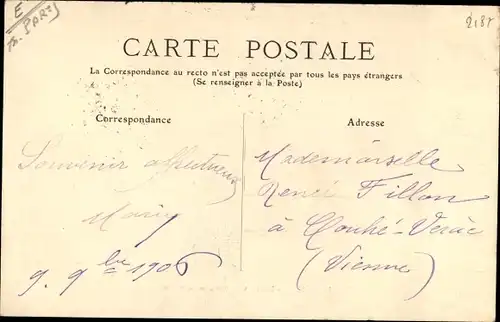 E
PARIS
2187
CARTE POSTALE
La Correspondance au recto n'est pas acceptée par tous les pays étrangers
(Se renseigner à la Poste)
Correspondance
Adresse
Souvenir affectueux
9. 9bre 1906
Mademoiselle
Renée Fillon
à Couhé-Vérac
(Vienne)